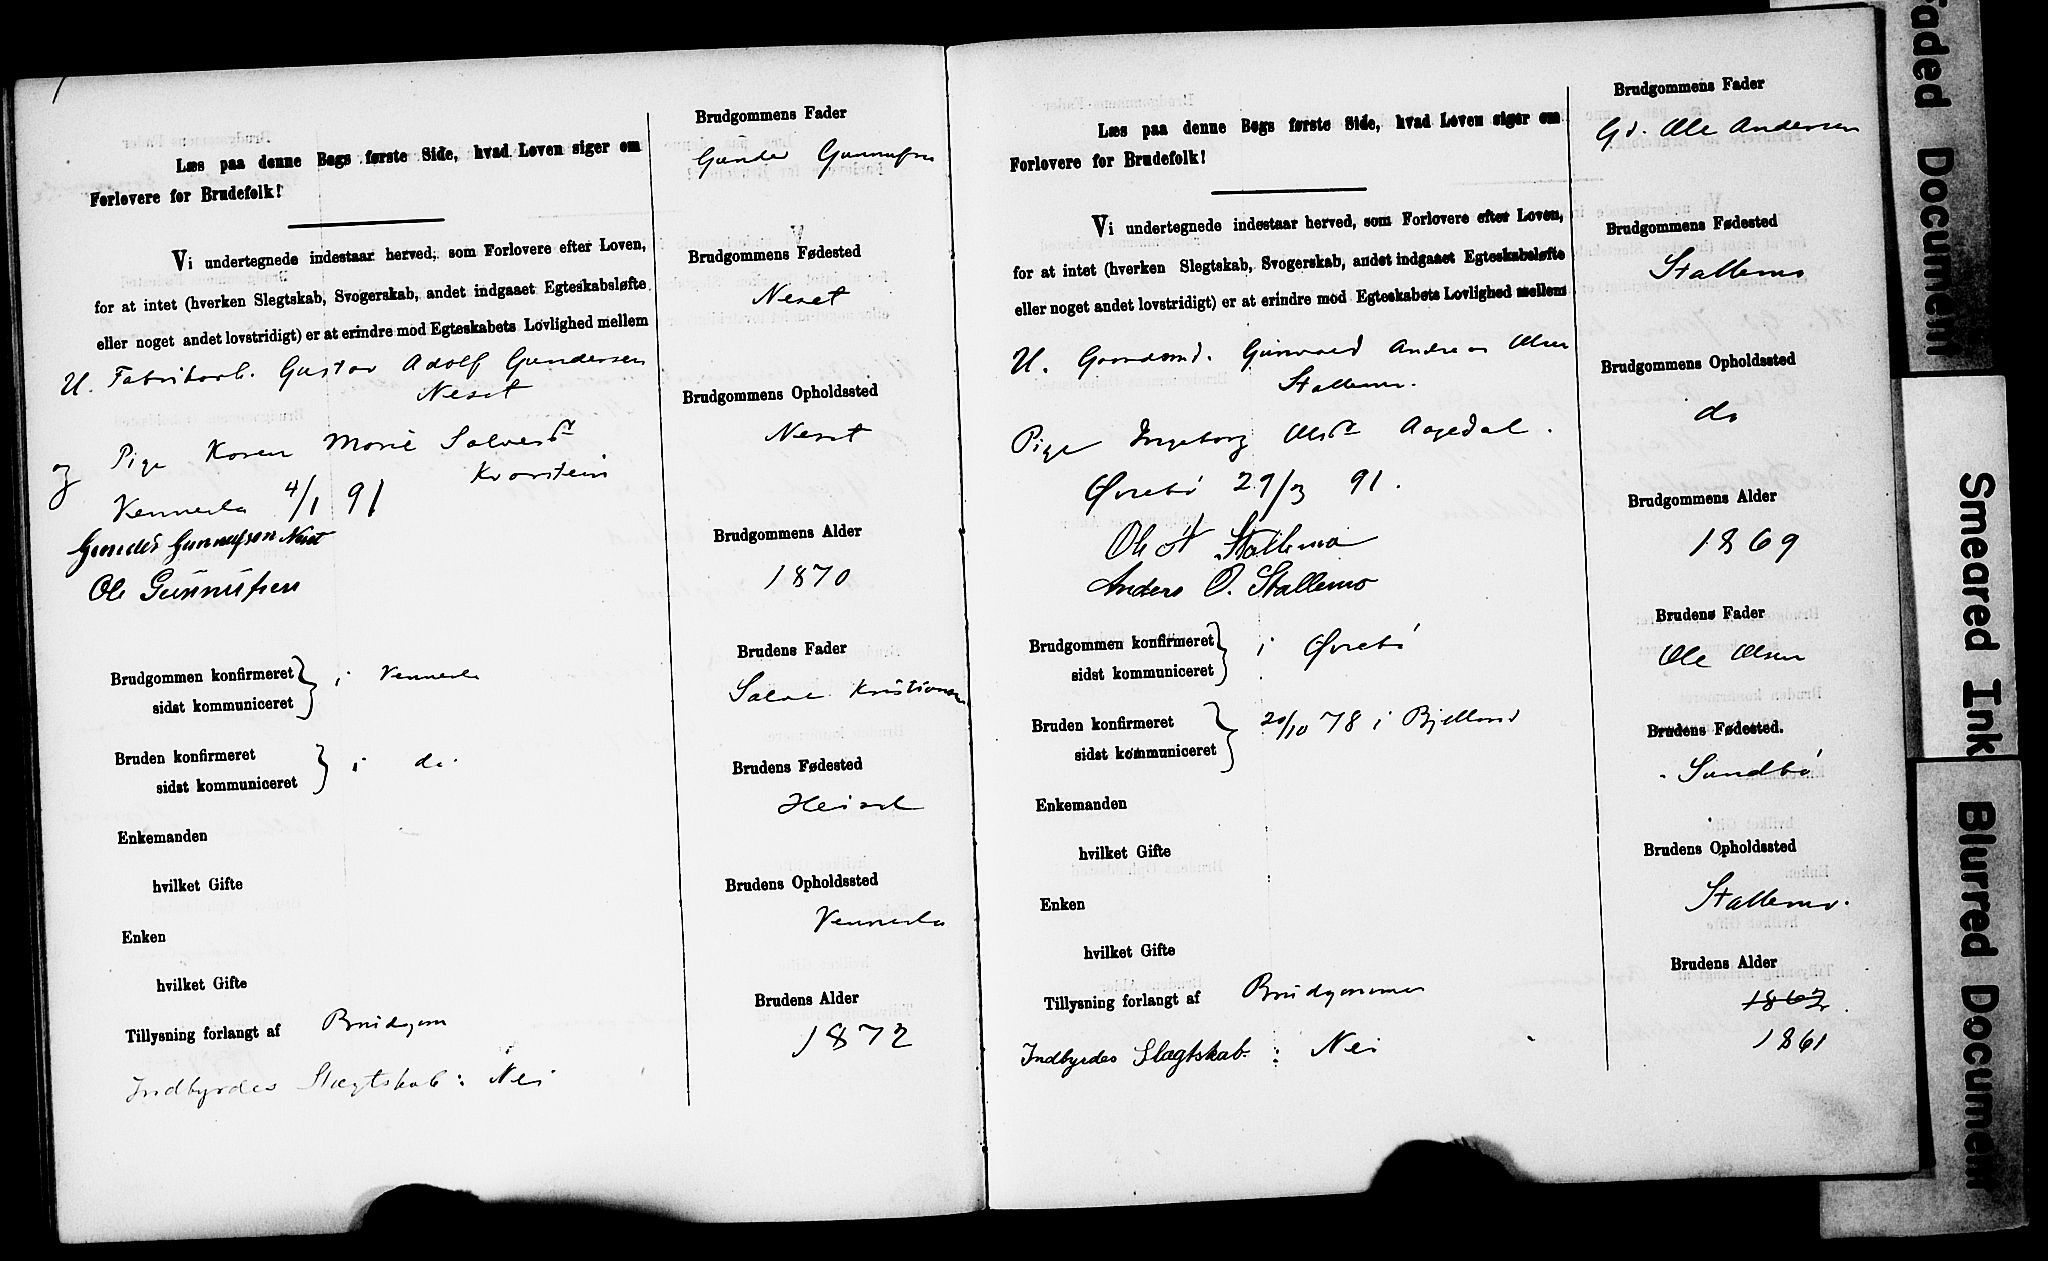 Læs paa denne Bogs første Side, hvad Loven siger om
Forlovere for Brudefolk!
Vi undertegnede indestaar herved, som Forlovere efter Loven,
for at intet (hverken Slegtskab, Svogerskab, andet indgaaet Egteskabsløfte
eller noget andet lovstridigt) er at erindre mod Egteskabets Lovlighed mellem
U. Fabrikarb. Gustav Adolf Gundersen
Neset
og Pige Karen Marie Salvesdr
Kvarstein
Vennesla 4/1 91
Gunder Gunnufsen Neset
Ole Gunnufsen
Brudgommen konfirmeret
sidst kommuniceret } i Vennesla
Bruden konfirmeret
sidst kommuniceret } i do.
Enkemanden
hvilket Gifte
Enken
hvilket Gifte
Tillysning forlangt af Brudgom
Indbyrdes Slægtskab: Nei
Brudgommens Fader
Gunder Gunnufsn
Brudgommens Fødested
Neset
Brudgommens Opholdssted
Neset
Brudgommens Alder
1870
Brudens Fader
Salve Kristiansen
Brudens Fødested
Heisel
Brudens Opholdssted
Vennesla
Brudens Alder
1872
Læs paa denne Bogs første Side, hvad Loven siger om
Forlovere for Brudefolk!
Vi undertegnede indestaar herved, som Forlovere efter Loven,
for at intet (hverken Slegtskab, Svogerskab, andet indgaaet Egteskabsløfte
eller noget andet lovstridigt) er at erindre mod Egteskabets Lovlighed mellem
U. Gaardmd. Gunvald Andreas Olsen
Stallemo.
Pige Ingeborg Olsdr Aagedal.
Øvrebø 29/3 91.
Ole A Stallemo
Anders O. Stallemo
Brudgommen konfirmeret
sidst kommuniceret } i Øvrebø
Bruden konfirmeret
sidst kommuniceret } 20/10 78 i Bjelland
Enkemanden
hvilket Gifte
Enken
hvilket Gifte
Tillysning forlangt af Brudgommen
Indbyrdes Slægtskab: Nei
Brudgommens Fader
Gd. Ole Andersen
Brudgommens Fødested
Stallemo
Brudgommens Opholdssted
do
Brudgommens Alder
1869
Brudens Fader
Ole Olsen
Brudens Fødested.
Sundbø
Brudens Opholdssted
Stallemo.
Brudens Alder
1867.
1861
Faded Documen
Smeared Ink
Blurred Documen